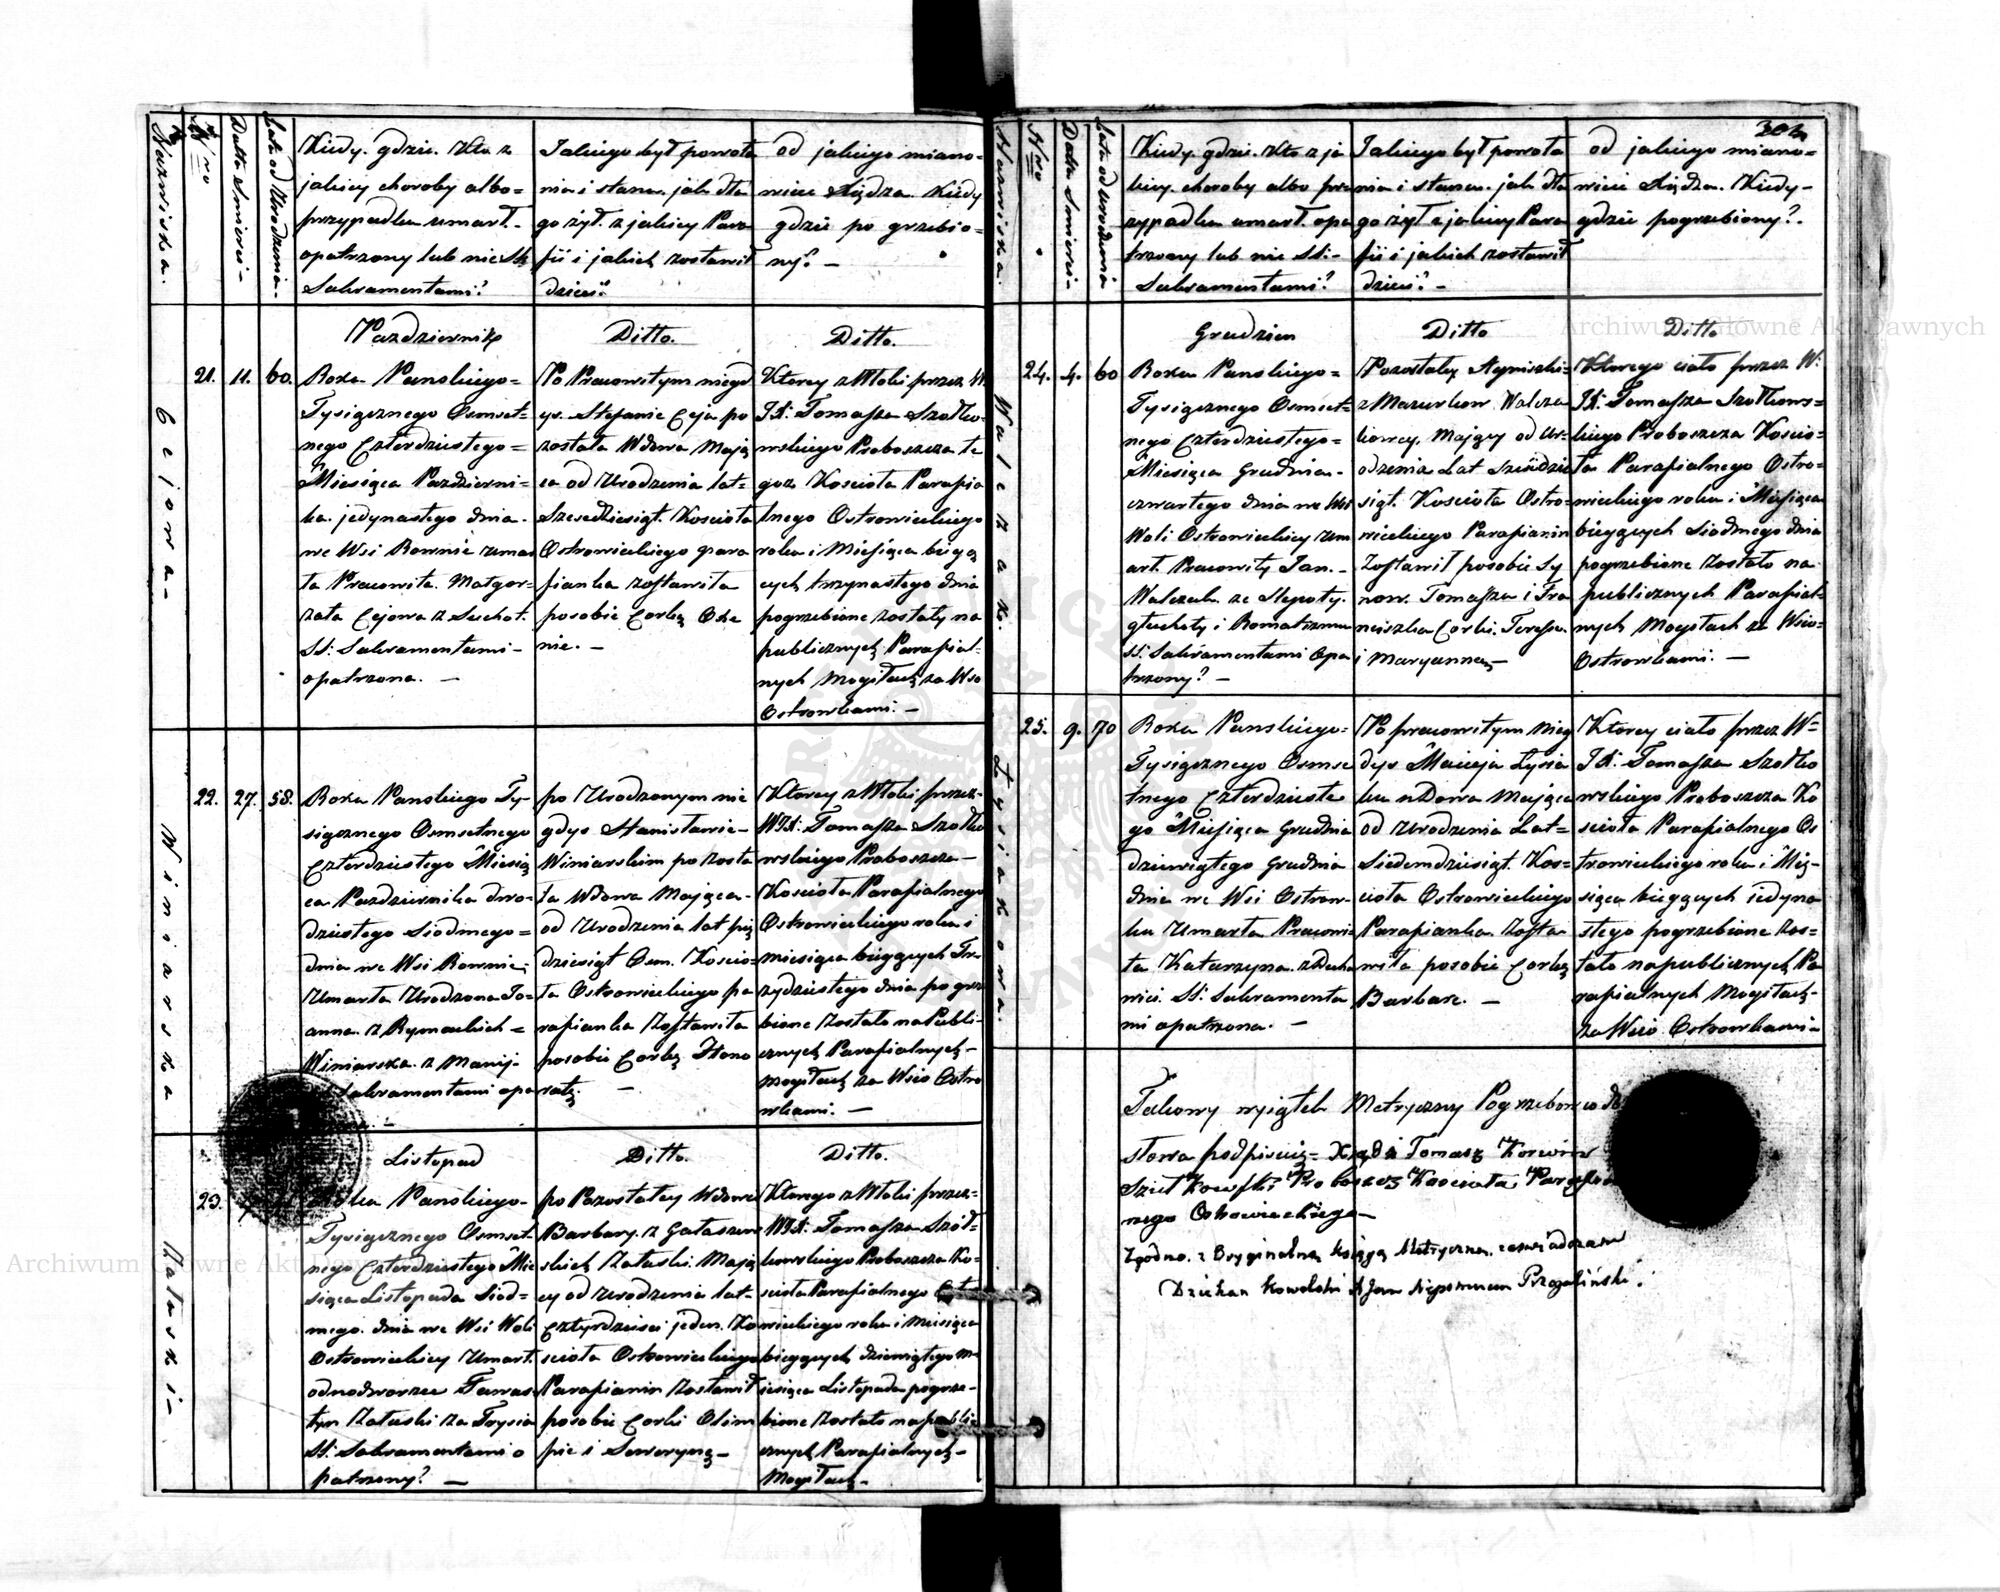 Nazwiska.
Nro
Datta Smierci
Lata od Urodzenia
Kiedy. gdzie. Kto z
jakiey choroby albo=
przypadku umarł.
opatrzony lub nie SS.
Sakramentami?
Jakiego był powoła
nia i stanu. jak dłu
go żył. z jakiey Para
fii i jakich zostawił
dzieci?
od jakiego miano=
wicie Xiędza. kiedy
gdzie po grzebio=
ny? –
Cejowa
Pazdziernik
21. 11. 60.
Roku Panskiego=
Tysiącznego Osmset=
nego Czterdziestego=
Miesiąca Pazdzierni=
ka. jedynastego dnia.
we Wsi Rownie umar
ła Pracowita. Małgor=
zata Cejowa z Suchot.
SS. Sakramentami–
opatrzona. –
Ditto.
Po Pracowitym niegd
ys. Stefanie Ceja po
zostala Wdowa Mają
ca od Urodzenia lat=
Szescdziesiąt. Kosciola
Ostrowieckiego para
fianka zostawiła
posobie Corkę
nie. –
Ditto.
Ktorey zWłoki przez W
JX. Tomasza Szołko=
wskiego Proboszcza te
goz Kosciola Parafia
lnego Ostrowieckiego
roku i Miesiąca bieżą
cych trzynastego dnia
pogrzebione zostały na
publicznych Parafial=
nych Mogiłach za Wsio
Ostrowkami. –
Winiarska
22. 27. 58.
Roku Panskiego Ty=
siącznego Osmsetnego
Czterdziestego Miesią
ca Pazdziernika dwu=
dziestego Siodmego=
dnia we Wsi Rownie.
Umarła Urodzona Jo=
anna. z Rymackich=
Winiarska. z
Sakramentami opa
po Urodzonym nie
gdys Stanisławie–
Winiarskim pozosta
ła Wdowa Mająca.
od Urodzenia lat pię
dziesiąt Osm. Koscio=
ła Ostrowieckiego pa
rafianka Zostawiła
posobie Corkę Hono
ratę. –
Ktorey zWłoki przez=
WJX: Tomasza Szołko
wskiego Proboszcza–
Kosciola Parafialnego
Ostrowieckiego roku i
miesiąca bieżących Trz
ydziestego dnia pogrze
bione zostało na Publi=
cznych Parafialnych–
Mogiłach za Wsio Ostro
wkami. –
Załuski
Listopad
23.
Roku Panskiego–
Tysiącznego Osmset=
nego Czterdziestego Mie
siąca Listopada Siod=
mego. dnia we Wsi Woli
Ostrowieckiey Umarł.
odnodworzec
Załuski
SS: Sakramentami o
patrzony? –
Ditto.
po Pozostałey Wdowie
Barbary. z
Załuski. Mają
cy od Urodzenia lat–
Cztyrdziesci jeden. Ko
sciola Ostrowieckiego
Parafianin Zostawił
posobie Corki Olim
pie i Sewerynę–
Ditto.
Ktorego zWłoki przez=
WJX: Tomasza Szoł=
kowskiego Proboszcza Ko=
sciola Parafialnego Ost
rowieckiego roku i Miesiąca
bieżących dziewiątego m
iesiąca Listopada pogrze=
bione Zostało na publi
cznych Parafialnych–
Mogiłach–
302
Nazwiska.
Nro
Datta Smierci
Lata od Urodzenia
Kiedy. gdzie. Kto z ja
kiey. choroby albo prz
zypadku umarł. opa
trzony lub nie SS:–
Sakramentami?
Jakiego był powoła
nia i stanu. jak dłu
go żył z jakiey Para
fii i jakich zostawił
dzieci? –
od jakiego miano=
wicie Xiędza. Kiedy–
gdzie pogrzebiony?.
Walczak.
Grudzien
24. 4. 60
Roku Panskiego=
Tysiącznego Osmset=
nego Czterdziestego=
Miesiąca Grudnia–
czwartego dnia we Wsi
Woli Ostrowieckiey um
arł. Pracowity Jan.–
Walczak. ze Slepoty.
głuchoty i Romatyzmu
SS. Sakramentami Opa
trzony? –
Ditto
Pozostałey Agnieszki=
z Mazurkow Walcza
kowey. Mający od Ur=
odzenia Lat Szesdzie
siąt. Kosciola Ostro=
wieckiego Parafianin
Zostawił posobie Sy
now. Tomasza i Fra
nciszka Corki. Teresse.
i Maryannę–
Ditto
Ktorego ciało przez W:
JX: Tomasza Szołkows=
kiego Proboszcza Koscio=
ła Parafialnego Ostro=
wieckiego roku i Miesiąca
bieżących Siodmego dnia
pogrzebione zostało na
publicznych Parafial=
nych Mogiłach za Wsio=
Ostrowkami. –
Łysiakowa.
25. 9. 70
Roku Panskiego=
Tysiącznego Osmse
tnego Czterdzieste
go Miesiąca Grudnia
dziewiątego Grudnia
dnia we Wsi Ostrow=
ku Umarła Pracowi
ta Katarzyna. z
SS. Sakramenta
mi opatrzona. –
Po pracowitym nieg
dys Macieja Łysia
ku wDowa Mająca
od Urodzenia Lat–
Siedemdziesiąt. Kos=
ciola Ostrowieckiego
Parafianka. Zosta
wiła posobie Corkę
Barbare. –
Ktorey ciało przez W=
JX. Tomasza Szołko
wskiego Proboszcza Ko
sciola Parafialnego Os
trowieckiego roku i Mie=
siąca bieżących jedyna
stego pogrzebione Zos=
tało na publicznych Pa
rafialnych Mogiłach–
za Wsio Ostrowkami–
Takowy wyiątek Metryczny Pogrzebow co do
słowa podpisuię= Xiądz Tomasz Korwin
Szołkowski Proboszcz Koscioła Parafial
nego Ostrowieckiego–
Zgodno. z Oryginalną Księgą Metryczną. zaswiadczam
Dziekan Kowelski X Jan Nepomucen Przegaliński.
Archiwum Główne Akt Dawnych
Archiwum Główne Akt Dawnych